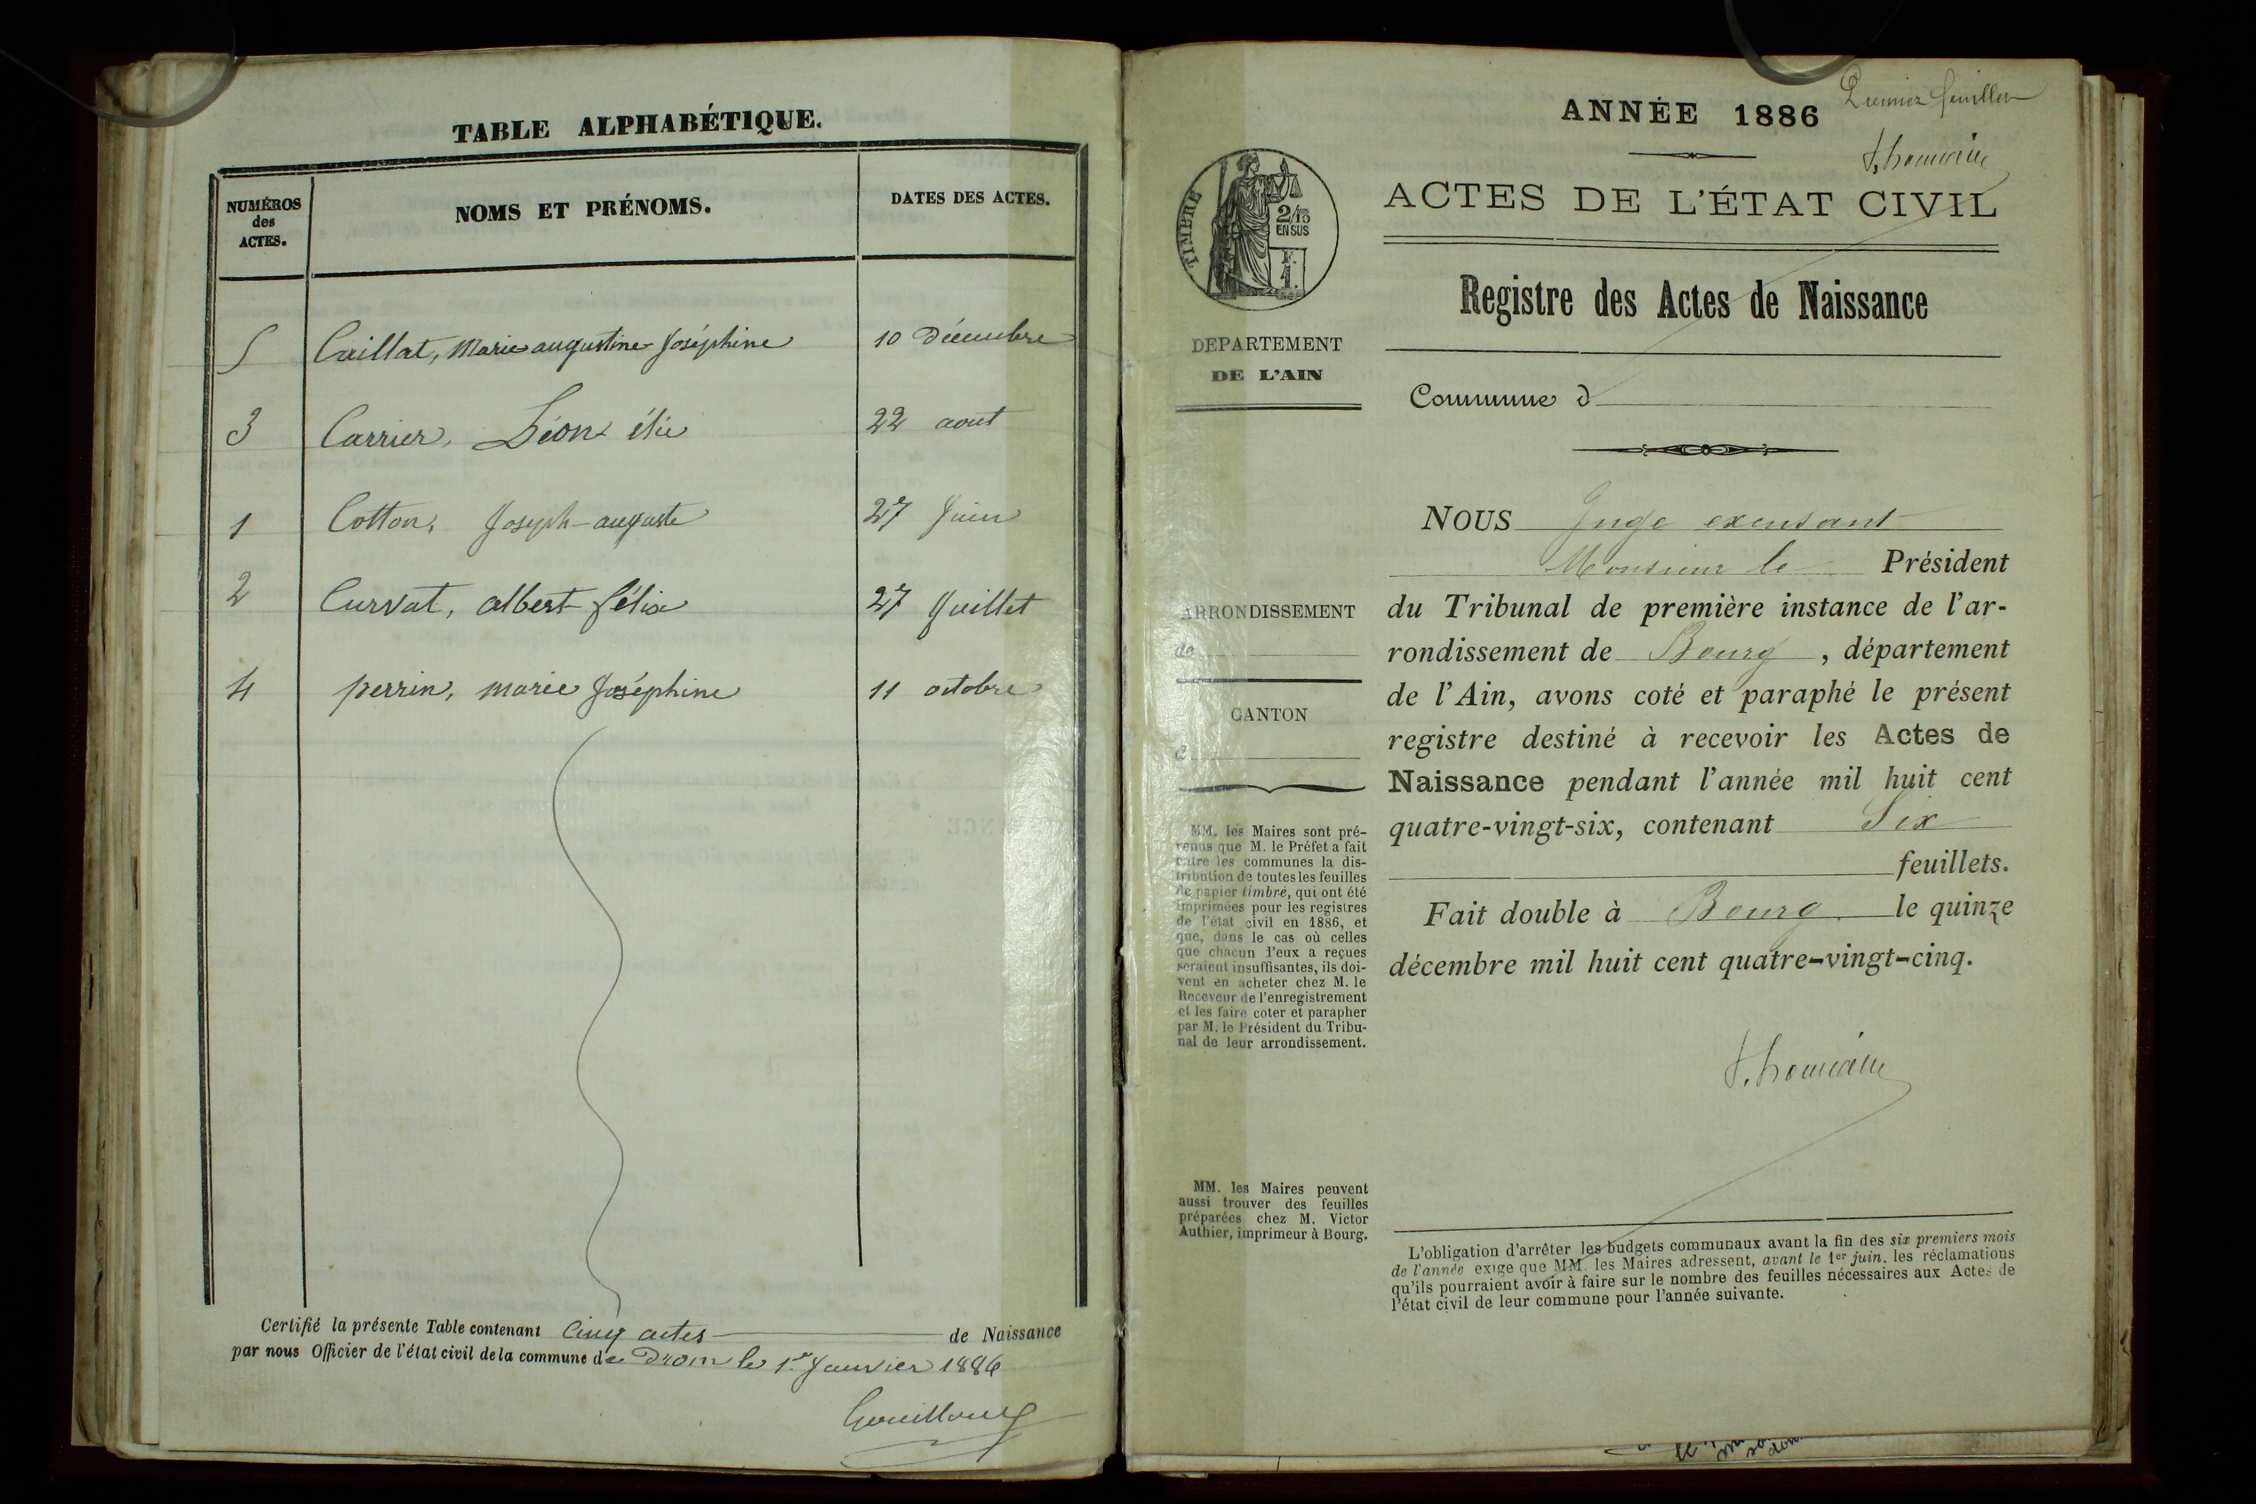 TABLE ALPHABÉTIQUE.
NUMÉROS
des
ACTES.
NOMS ET PRÉNOMS.
DATES DES ACTES.
5 Caillat, Marie augustine Joséphine 10 Décembre
3 Carrier, Léon élie 22 aout
1 Cotton, Joseph-auguste 27 Juin
2 Curvat, albert félix 27 Juillet
4 perrin, marie Joséphine 11 octobre
Certifié la présente Table contenant Cinq actes de Naissance
par nous Officier de l'état civil de la commune de Drom le 1er Janvier 1886
Premier feuillet
ANNÉE 1886
ACTES DE L'ÉTAT CIVIL
TIMBRE
2/10
EN SUS
Registre des Actes de Naissance
DEPARTEMENT
DE L'AIN
Commune d
NOUS Juge excusant
Monsieur le Président
du Tribunal de première instance de l'ar-
rondissement de Bourg, département
de l'Ain, avons coté et paraphé le présent
registre destiné à recevoir les Actes de
Naissance pendant l'année mil huit cent
quatre-vingt-six, contenant Six
feuillets.
Fait double à Bourg. le quinze
décembre mil huit cent quatre-vingt-cinq.
ARRONDISSEMENT
de
CANTON
MM. les Maires sont pré-
venus que M. le Préfet a fait
entre les communes la dis-
tribution de toutes les feuilles
de papier timbré, qui ont été
imprimées pour les registres
de l'état civil en 1886, et
que, dans le cas où celles
que chacun d'eux a reçues
seraient insuffisantes, ils doi-
vent en acheter chez M. le
Receveur de l'enregistrement
et les faire coter et parapher
par M. le Président du Tribu-
nal de leur arrondissement.
MM. les Maires peuvent
aussi trouver des feuilles
préparées chez M. Victor
Authier, imprimeur à Bourg.
L'obligation d'arrêter les budgets communaux avant la fin des six premiers mois
de l'année exige que MM. les Maires adressent, avant le 1er juin, les réclamations
qu'ils pourraient avoir à faire sur le nombre des feuilles nécessaires aux Actes de
l'état civil de leur commune pour l'année suivante.